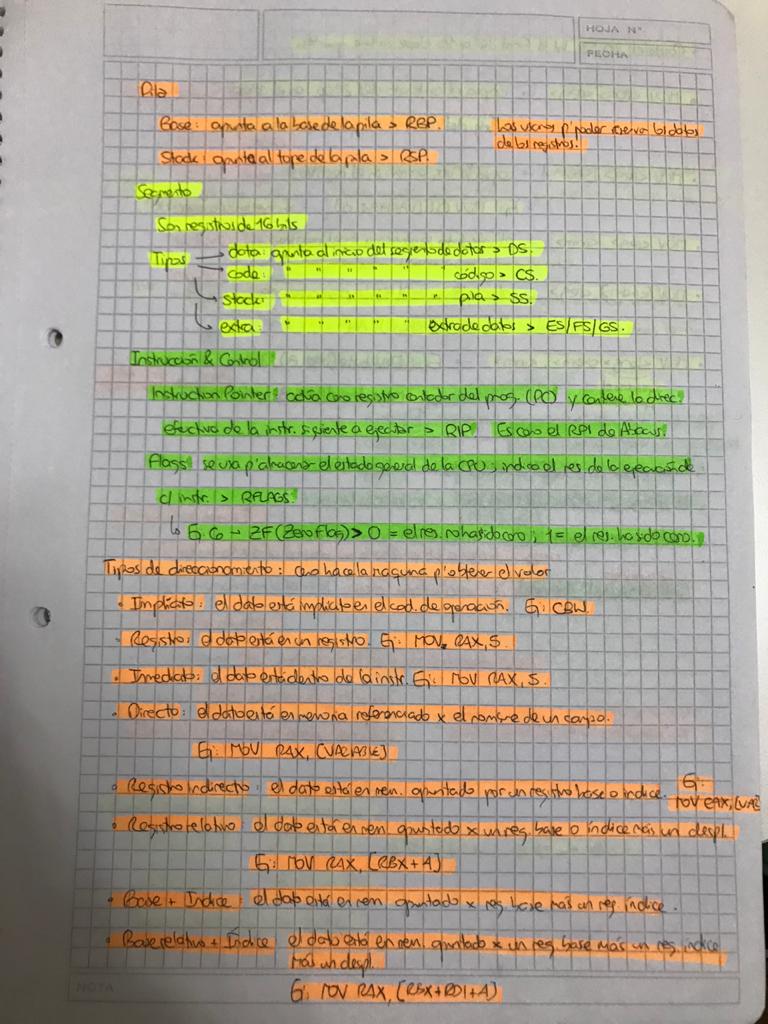 HOJA N°
FECHA
Pila
Base: apunta a la base de la pila > RBP.
Los usamos p' poder reservar los datos
de los registros.
Stack: apunta al tope de la pila > RSP.
Segmento
Son registros de 16 bits
Tipos → data: apunta al inicio del segmento de datos > DS.
→ code: " " " " " código > CS.
→ stack: " " " " " pila > SS.
→ extra: " " " " extra de datos > ES/FS/GS.
Instrucción & Control
Instruction Pointer: actúa como registro contador del prog. (PC) y contiene la direc.
efectiva de la instr. siguiente a ejecutar > RIP. Es como el RPI de Abacus.
Flags: se usa p' almacenar el estado general de la CPU, indica el res. de la ejecución de
c/ instr. > RFLAGS.
↳ Ej. 6 → ZF (Zero Flag) > 0 = el res. no ha sido cero; 1 = el res. ha sido cero.
Tipos de direccionamiento: cómo hace la máquina p' obtener el valor
• Implícito: el dato está implícito en el cod. de operación. Ej: CBW.
• Registro: el dato está en un registro. Ej: MOV RAX, 5.
• Inmediato: el dato está dentro de la instr. Ej: MOV RAX, 5.
• Directo: el dato está en memoria referenciado x el nombre de un campo.
Ej: MOV RAX, [VARIABLE]
• Registro indirecto: el dato está en mem. apuntado por un registro base o índice. Ej:
MOV EAX, [VAR
• Registro relativo: el dato está en mem. apuntado x un reg. base o índice más un despl.
Ej: MOV RAX, [RBX+4]
• Base + Índice: el dato está en mem. apuntado x reg. base más un reg. índice.
• Base relativo + Índice el dato está en mem. apuntado x un reg. base más un reg. índice
más un despl.
Ej: MOV RAX, [RBX+RDI+4]
NOTA